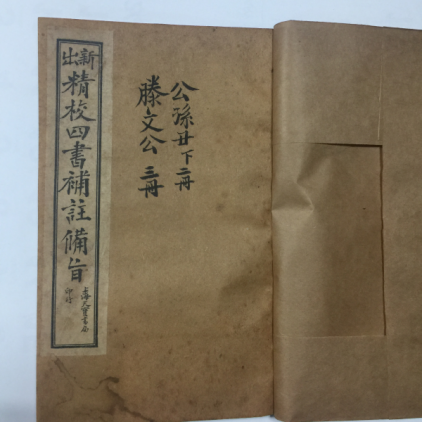 公孫丑下二冊
滕文公三冊
新出
精校四書補註備旨